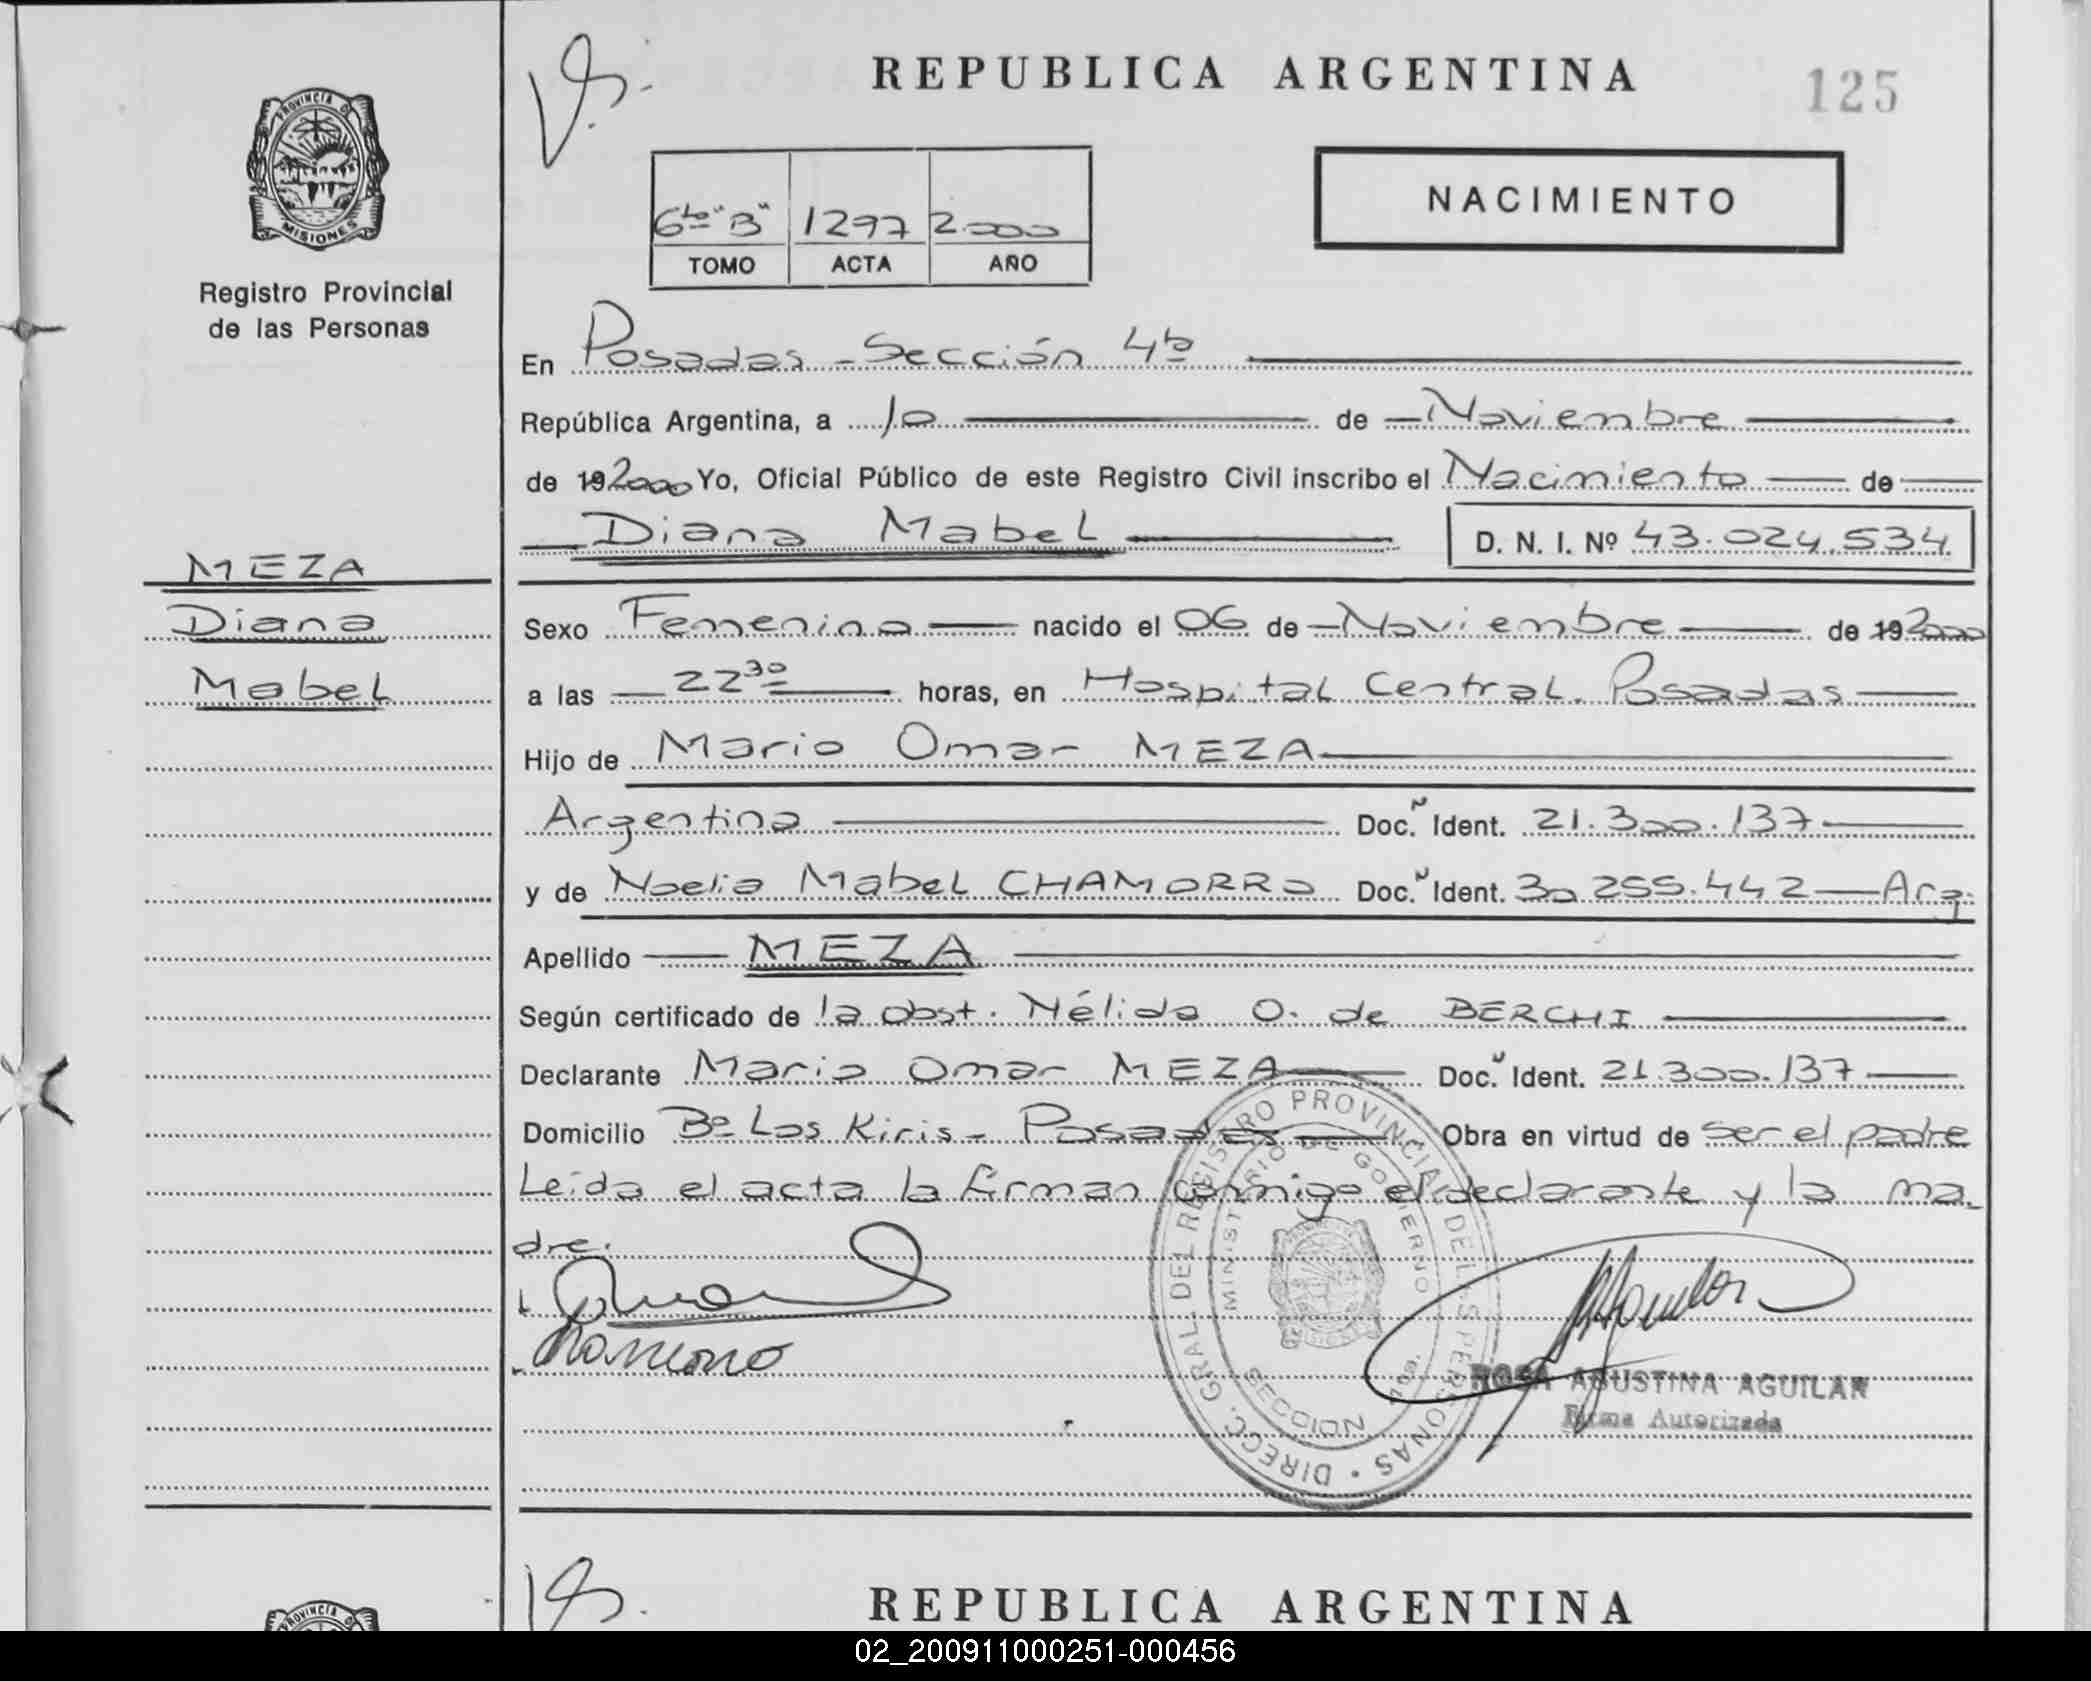 REPUBLICA ARGENTINA
125
PROVINCIA DE MISIONES
Registro Provincial
de las Personas
6to "B" 1297 2.000
TOMO ACTA AÑO
NACIMIENTO
En Posadas - Sección 4ta
República Argentina, a 10 de Noviembre
de 19 2000 Yo, Oficial Público de este Registro Civil inscribo el Nacimiento de
Diana Mabel
D. N. I. Nº 43.024.534
MEZA
Diana
Mabel
Sexo Femenino nacido el 06 de Noviembre de 19 2000
a las 22 30 horas, en Hospital Central. Posadas
Hijo de Mario Omar MEZA
Argentina Doc. Ident. 21.300.137
y de Noelia Mabel CHAMORRO Doc. Ident. 30 255.442 Arg.
Apellido MEZA
Según certificado de la obst. Nélida O. de BERCHI
Declarante Mario Omar MEZA Doc. Ident. 21.300.137
Domicilio Bº Los Kiris - Posadas Obra en virtud de ser el padre
Leída el acta la firman conmigo el declarante y la ma-
dre.
DIRECC. GRAL. DEL REGISTRO PROVINCIAL DE LAS PERSONAS
MINISTERIO DE GOBIERNO
SECCION
ROSA AGUSTINA AGUILAR
Firma Autorizada
REPUBLICA ARGENTINA
PROVINCIA D
02_200911000251-000456